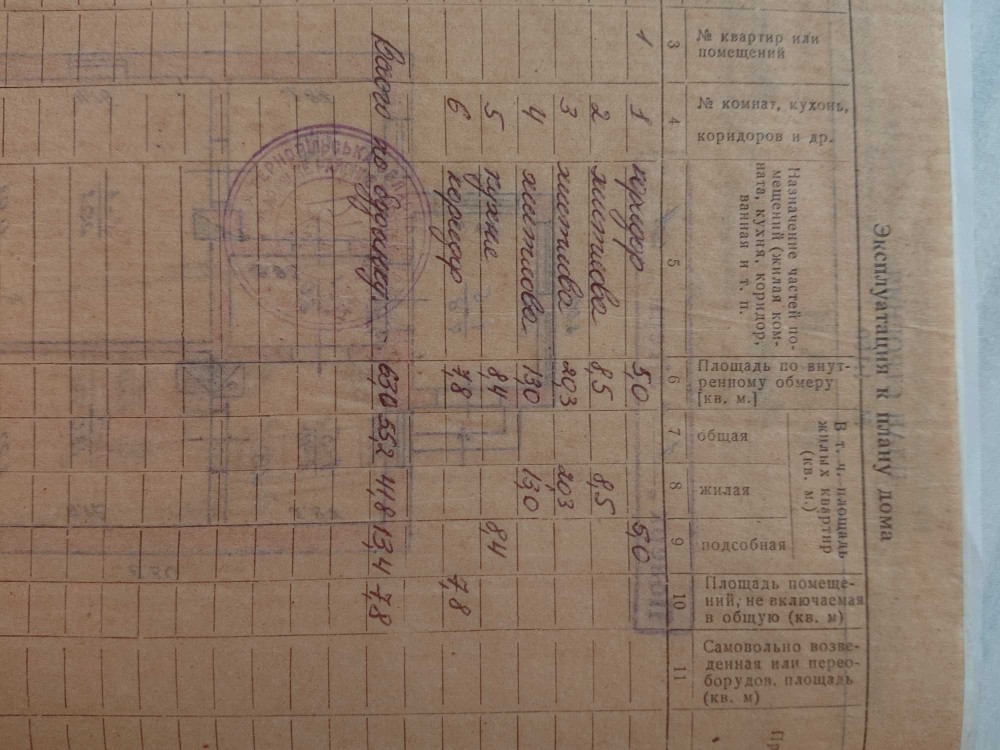 Эксплуатация к плану дома
№ квартир или помещений
№ комнат, кухонь, коридоров и др.
Назначение частей по-
мещений (жилая ком-
ната, кухня, коридор,
ванная и т. п.
Площадь по внут-
ренному обмеру
[кв. м.]
В т. ч. площадь
жилых квартир
(кв. м.)
общая
жилая
подсобная
Площадь помеще-
ний, не включаемая
в общую (кв. м)
Самовольно возве-
денная или перео-
борудов. площадь
(кв. м)
3 4 5 6 7 8 9 10 11
1 1 коридор 5,0 5,0
2 житлова 8,5 8,5
3 житлова 20,3 20,3
4 житлова 13,0 13,0
5 кухне 8,4 8,4
6 коридор 7,8 7,8
Всього по будинку: 63,0 55,2 41,8 13,4 7,8